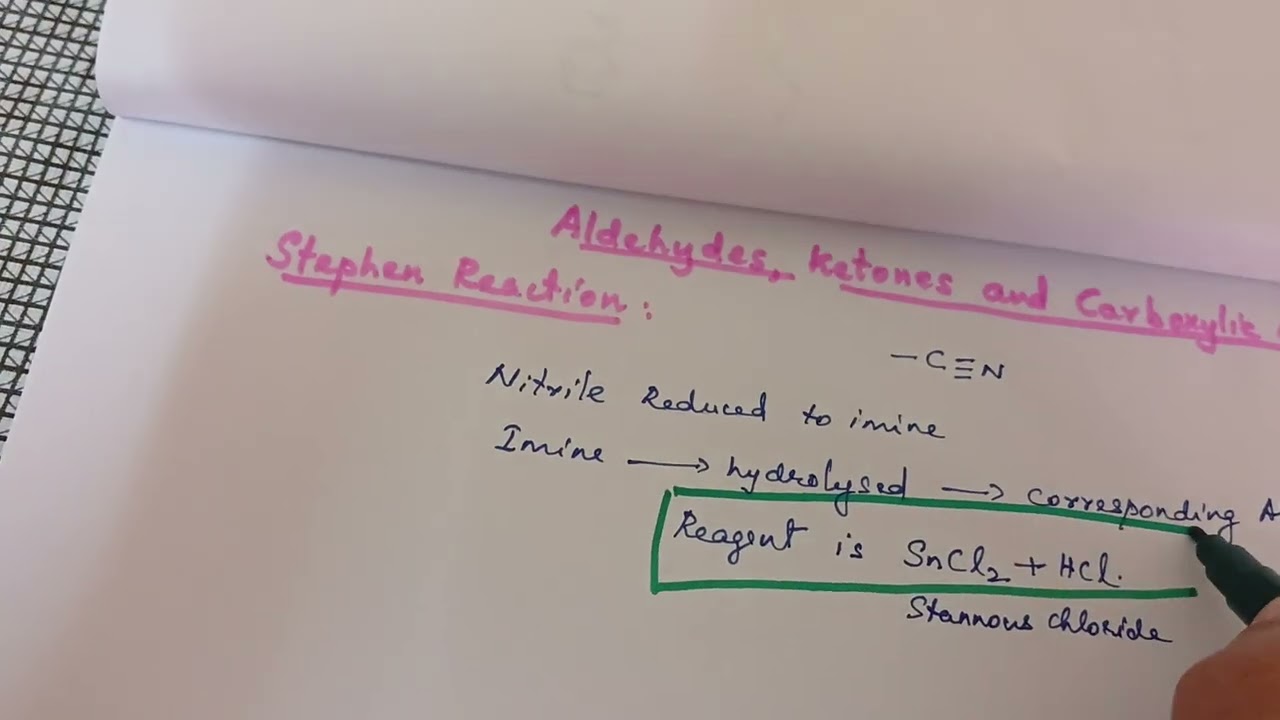 Aldehydes, Ketones and Carboxylic
Stephen Reaction:
-C≡N
Nitrile Reduced to imine
Imine → hydrolysed → corresponding A
Reagent is SnCl2 + HCl.
Stannous chloride